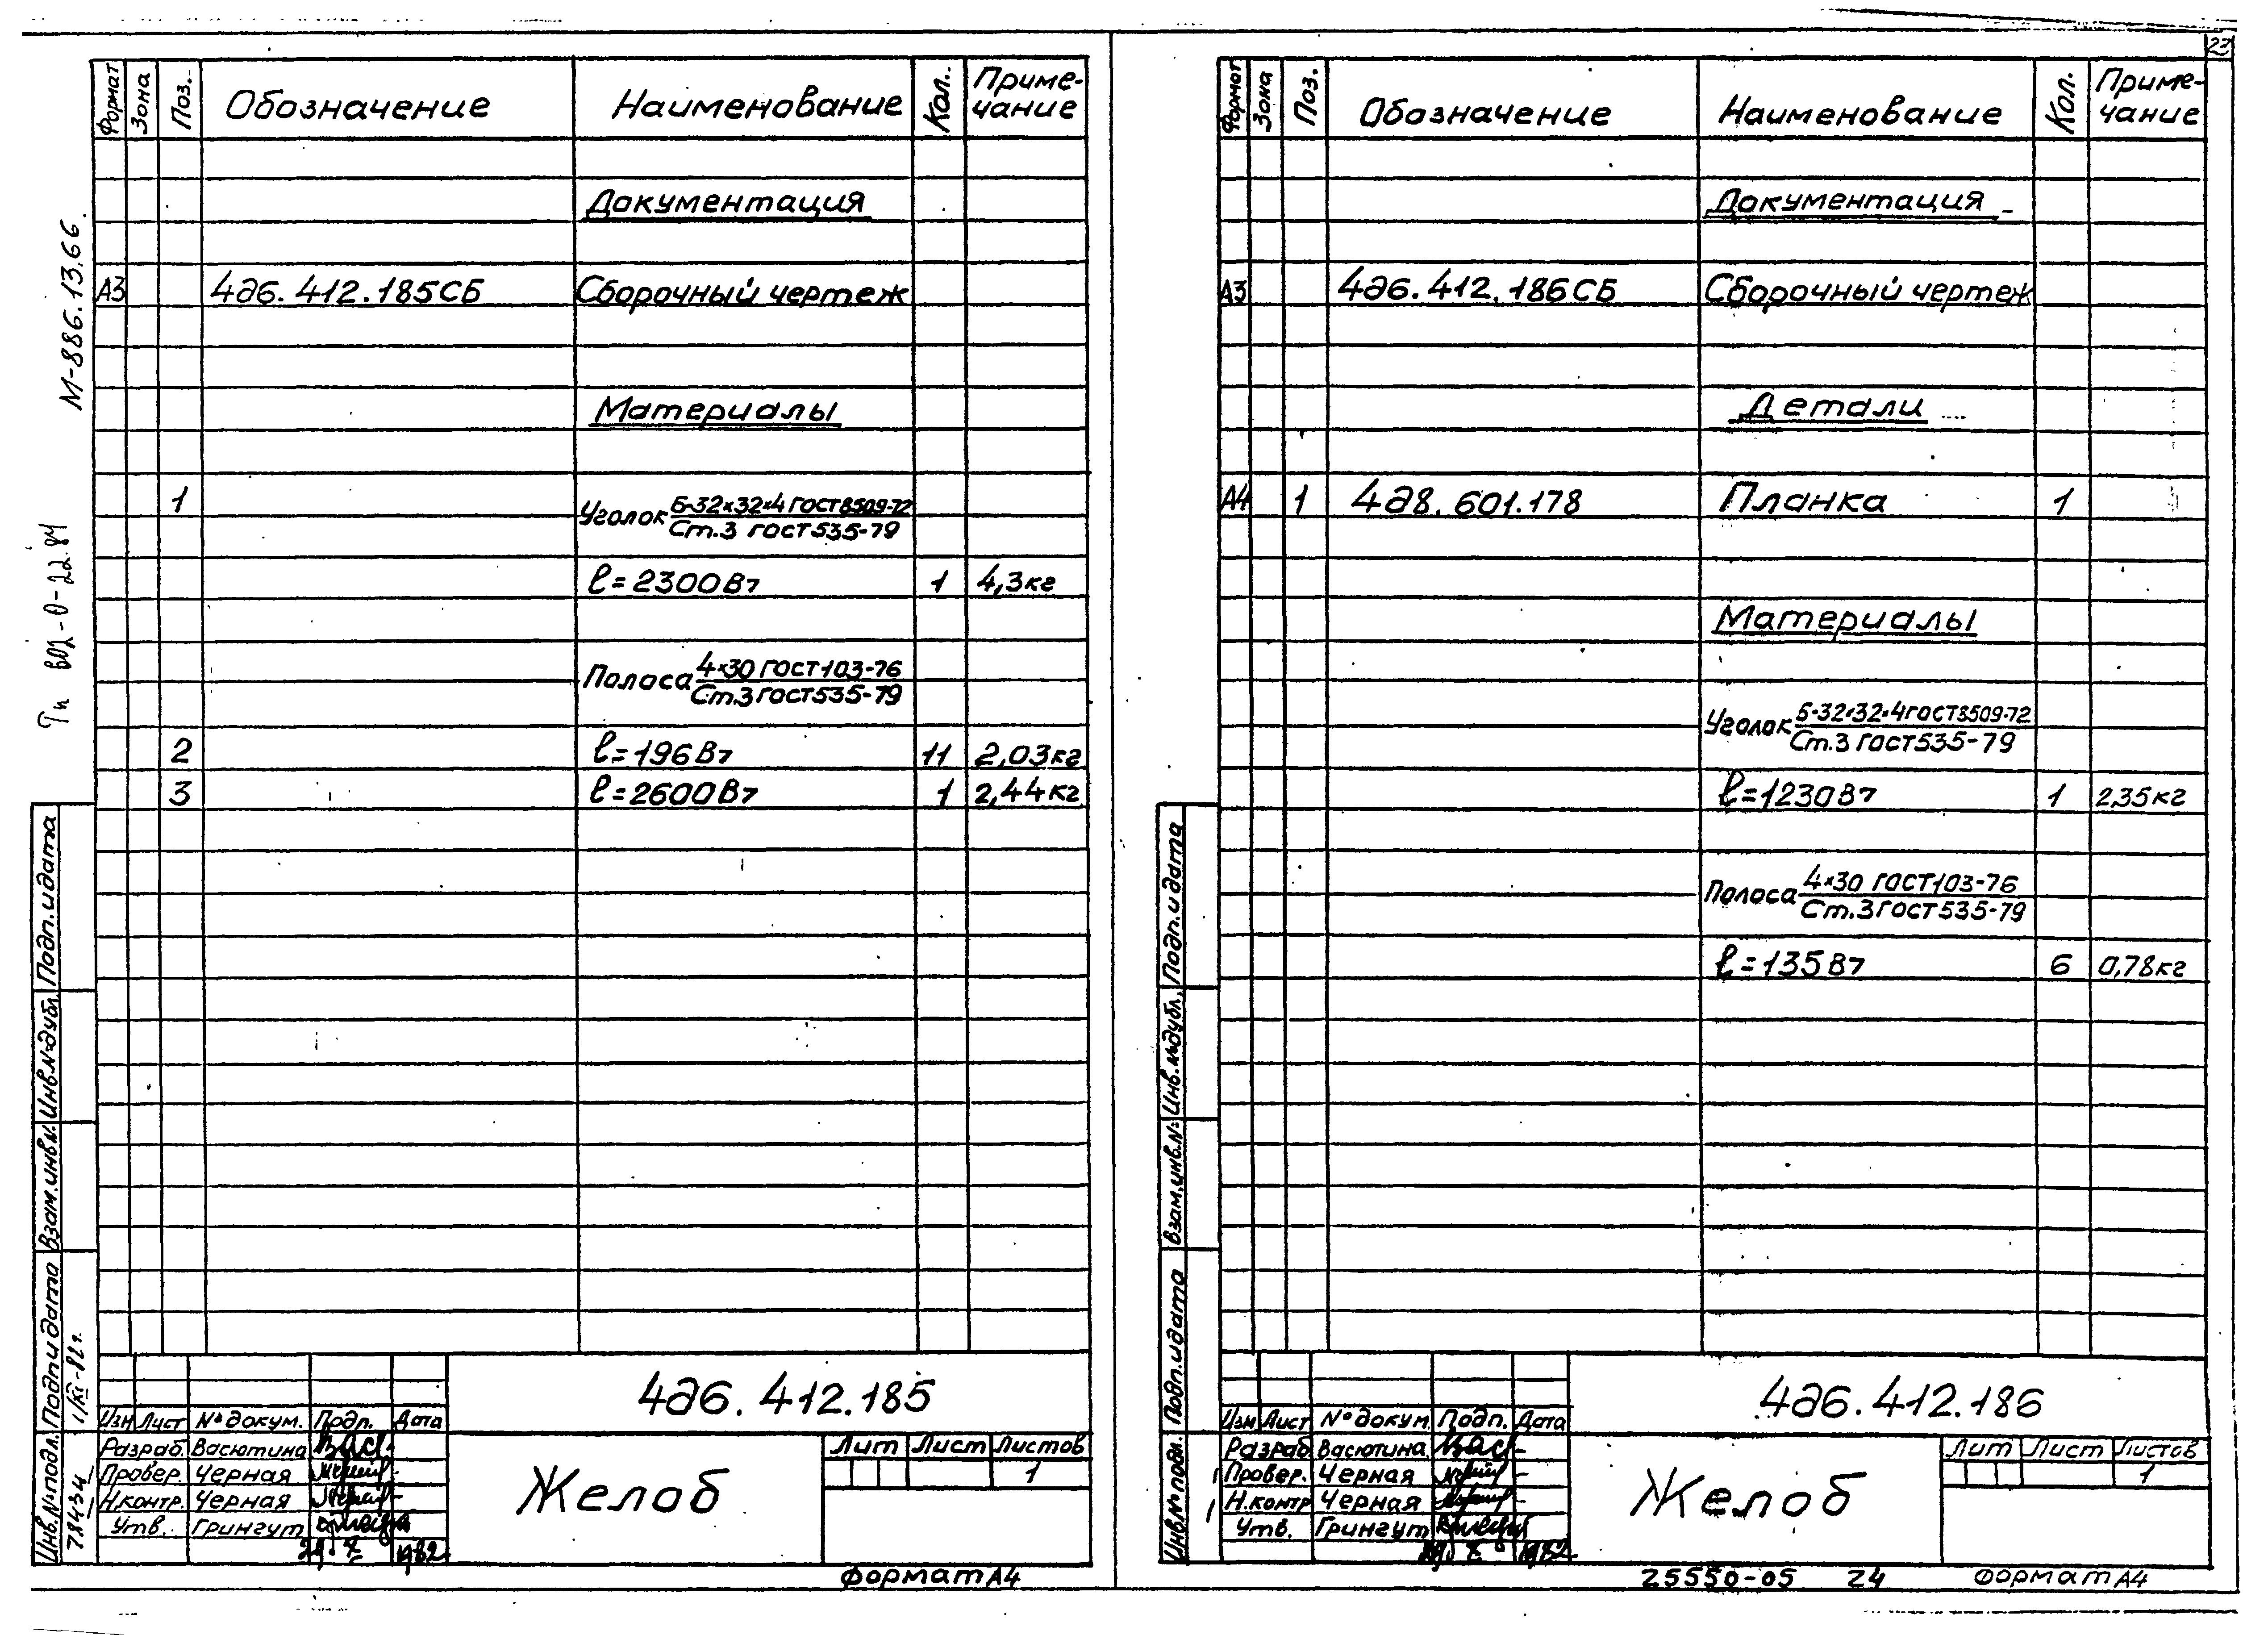 23
М-886.13.66.
Тп В02-0-22.84
Формат Зона Поз. Обозначение Наименование Кол. Приме-
чание
Документация
А3 4д6.412.185СБ Сборочный чертеж
Материалы
1 Уголок Б-32×32×4 ГОСТ 8509-72
Ст.3 ГОСТ 535-79
ℓ=2300Вт 1 4,3кг
Полоса 4×30 ГОСТ 103-76
Ст.3 ГОСТ 535-79
2 ℓ=196Вт 11 2,03кг
3 ℓ=2600Вт 1 2,44кг
Подп. и дата
Инв.№ дубл.
Взам.инв.№
Подп и дата
1/XI-82г.
Инв.№ подл.
78434
4д6.412.185
Изм Лист № докум. Подп. Дата
Разраб. Васютина
Провер. Черная
Н.контр. Черная
Утв. Грингут
1982
Желоб
Лит Лист Листов
1
Формат А4
Формат Зона Поз. Обозначение Наименование Кол. Приме-
чание
Документация
А3 4д6.412.186СБ Сборочный чертеж
Детали
А4 1 4д8.601.178 Планка 1
Материалы
Уголок Б-32×32×4 ГОСТ 8509-72
Ст.3 ГОСТ 535-79
ℓ=1230Вт 1 2,35кг
Полоса 4×30 ГОСТ 103-76
Ст.3 ГОСТ 535-79
ℓ=135Вт 6 0,78кг
Подп. и дата
Инв.№ дубл.
Взам.инв.№
Подп. и дата
Инв.№ подл.
4д6.412.186
Изм Лист № докум. Подп. Дата
Разраб Васютина
Провер. Черная
Н.контр Черная
Утв. Грингут
1982
Желоб
Лит Лист Листов
1
25550-05 24 Формат А4